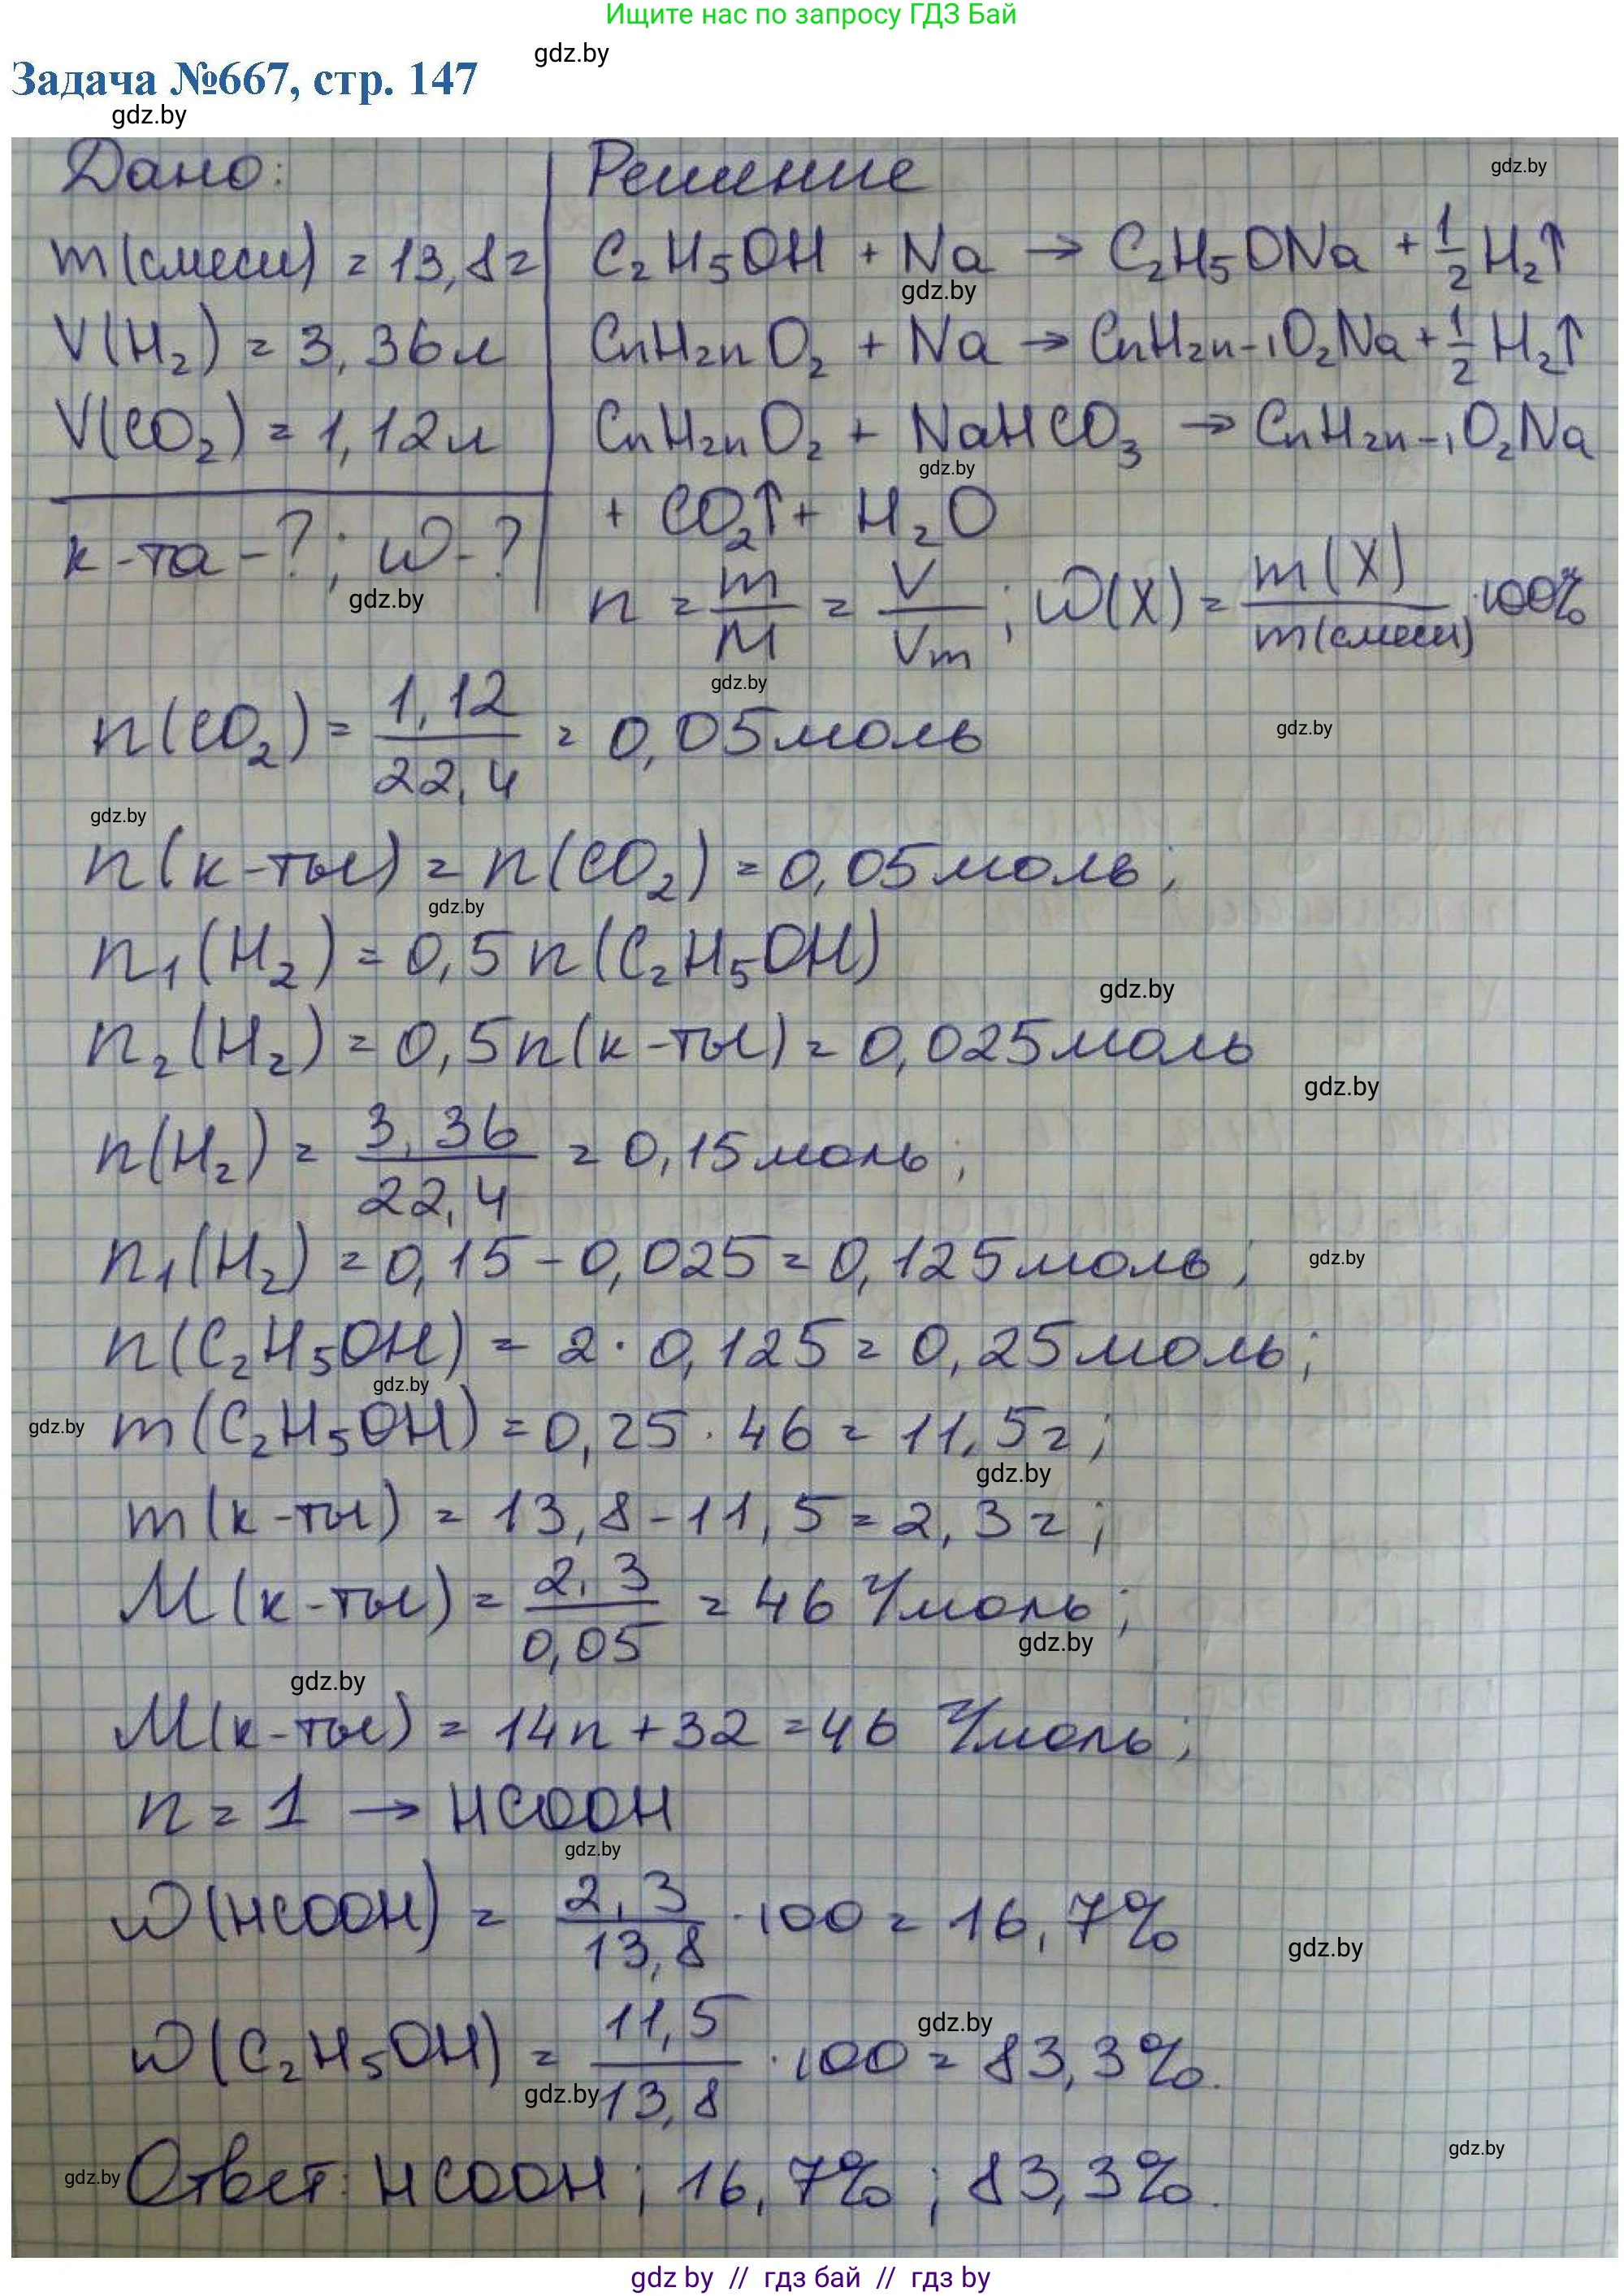 Ищите нас по запросу ГДЗ Бай
gdz.by
Задача №667, стр. 147
gdz.by
Дано:
Решение
gdz.by
m(смеси) = 13,8г
C₂H₅OH + Na → C₂H₅ONa + 1/2 H₂↑
gdz.by
V(H₂) = 3,36л
CnH2nO₂ + Na → CnH2n-1O₂Na + 1/2 H₂↑
V(CO₂) = 1,12л
CnH2nO₂ + NaHCO₃ → CnH2n-1O₂Na
gdz.by
+ CO₂↑ + H₂O
к-та - ?; w - ?
gdz.by
n = m/M = V/Vm; w(X) = m(X)/m(смеси) · 100%
gdz.by
n(CO₂) = 1,12/22,4 = 0,05моль
gdz.by
gdz.by
n(к-ты) = n(CO₂) = 0,05моль;
gdz.by
n₁(H₂) = 0,5n(C₂H₅OH)
gdz.by
n₂(H₂) = 0,5n(к-ты) = 0,025моль
gdz.by
n(H₂) = 3,36/22,4 = 0,15моль;
n₁(H₂) = 0,15 - 0,025 = 0,125моль;
gdz.by
n(C₂H₅OH) = 2 · 0,125 = 0,25моль;
gdz.by
gdz.by
m(C₂H₅OH) = 0,25 · 46 = 11,5г;
gdz.by
m(к-ты) = 13,8 - 11,5 = 2,3г;
M(к-ты) = 2,3/0,05 = 46 г/моль;
gdz.by
gdz.by
M(к-ты) = 14n + 32 = 46 г/моль;
n = 1 → HCOOH
gdz.by
w(HCOOH) = 2,3/13,8 · 100 = 16,7%
gdz.by
w(C₂H₅OH) = 11,5/13,8 · 100 = 83,3%.
gdz.by
gdz.by
gdz.by
gdz.by
Ответ: HCOOH; 16,7%; 83,3%.
gdz by // гдз бай // гдз by